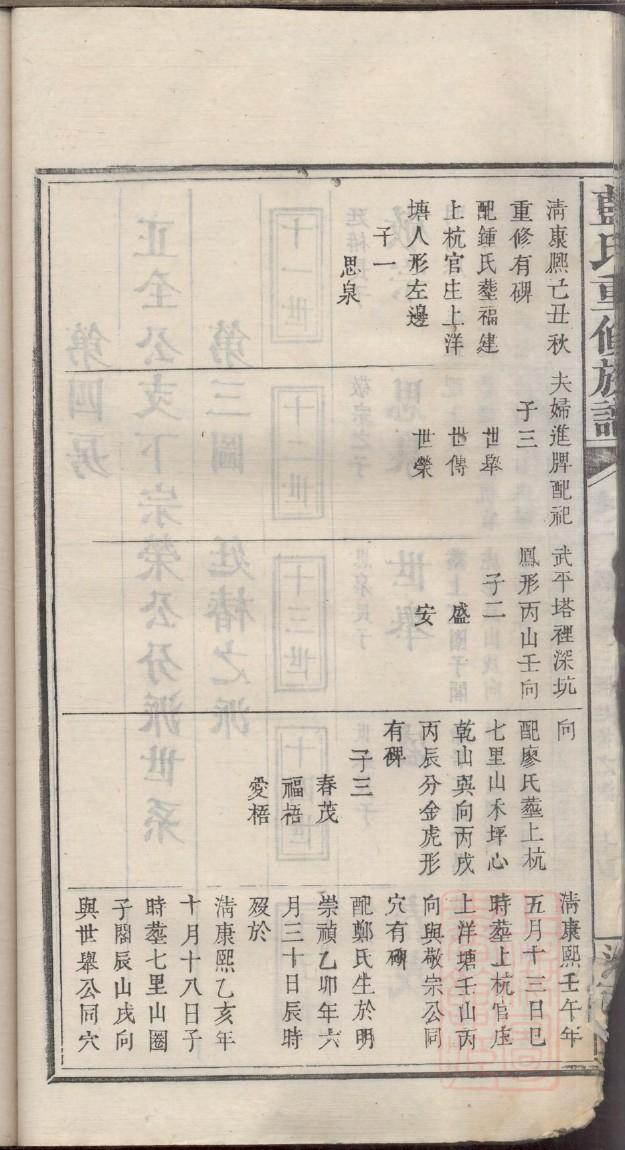 藍氏重修族譜
清康熙己丑秋
重修有碑
配鍾氏塟福建
上杭官庄上洋
塘人形左邊
子一
思泉
夫婦進牌配祀
子三
世舉
世傳
世榮
武平塔裡深坑
鳳形丙山壬向
子二
盛
安
向
配廖氏塟上杭
七里山禾坪心
乾山巽向丙戌
丙辰分金虎形
有碑
子三
春茂
福梧
愛梧
清康熙壬午年
五月十三日巳
時塟上杭官庄
上洋塘壬山丙
向與敬宗公同
穴有碑
配鄭氏生於明
崇禎乙卯年六
月三十日辰時
歿於
清康熙乙亥年
十月十八日子
時塟七里山圈
子閣辰山戌向
與世舉公同穴